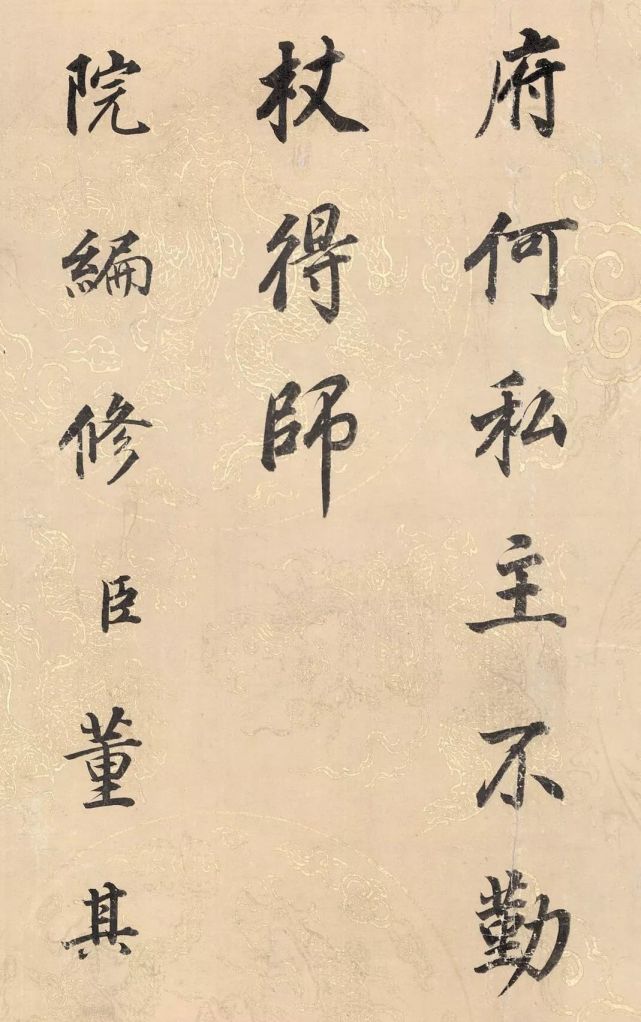 府何私主不勤
杖得師
院編修臣董其